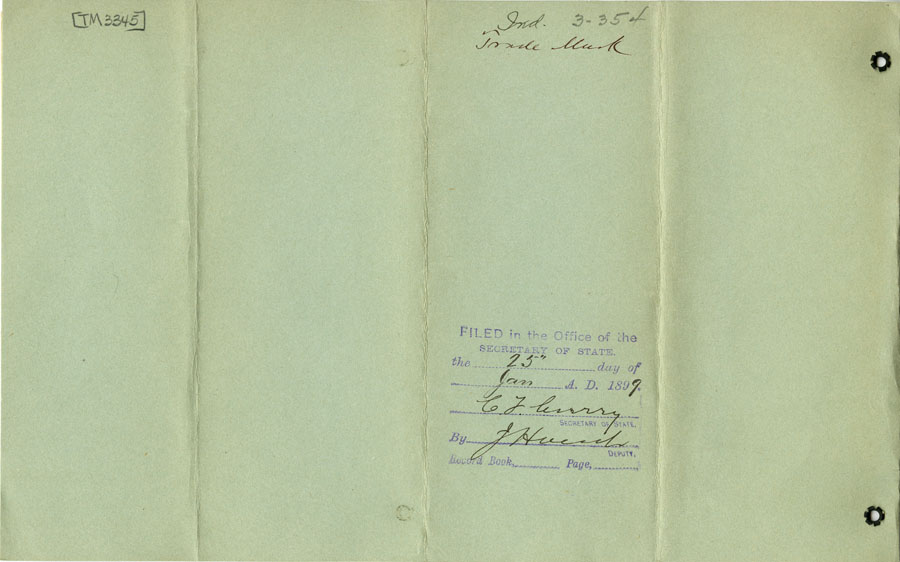 [TM 3345]
Ind. 3-354
Trade Mark
FILED in the Office of the
SECRETARY OF STATE.
the 25" day of
Jan A. D. 1899.
C F Curry
SECRETARY OF STATE.
By J Hoesch
DEPUTY.
Record Book, Page,